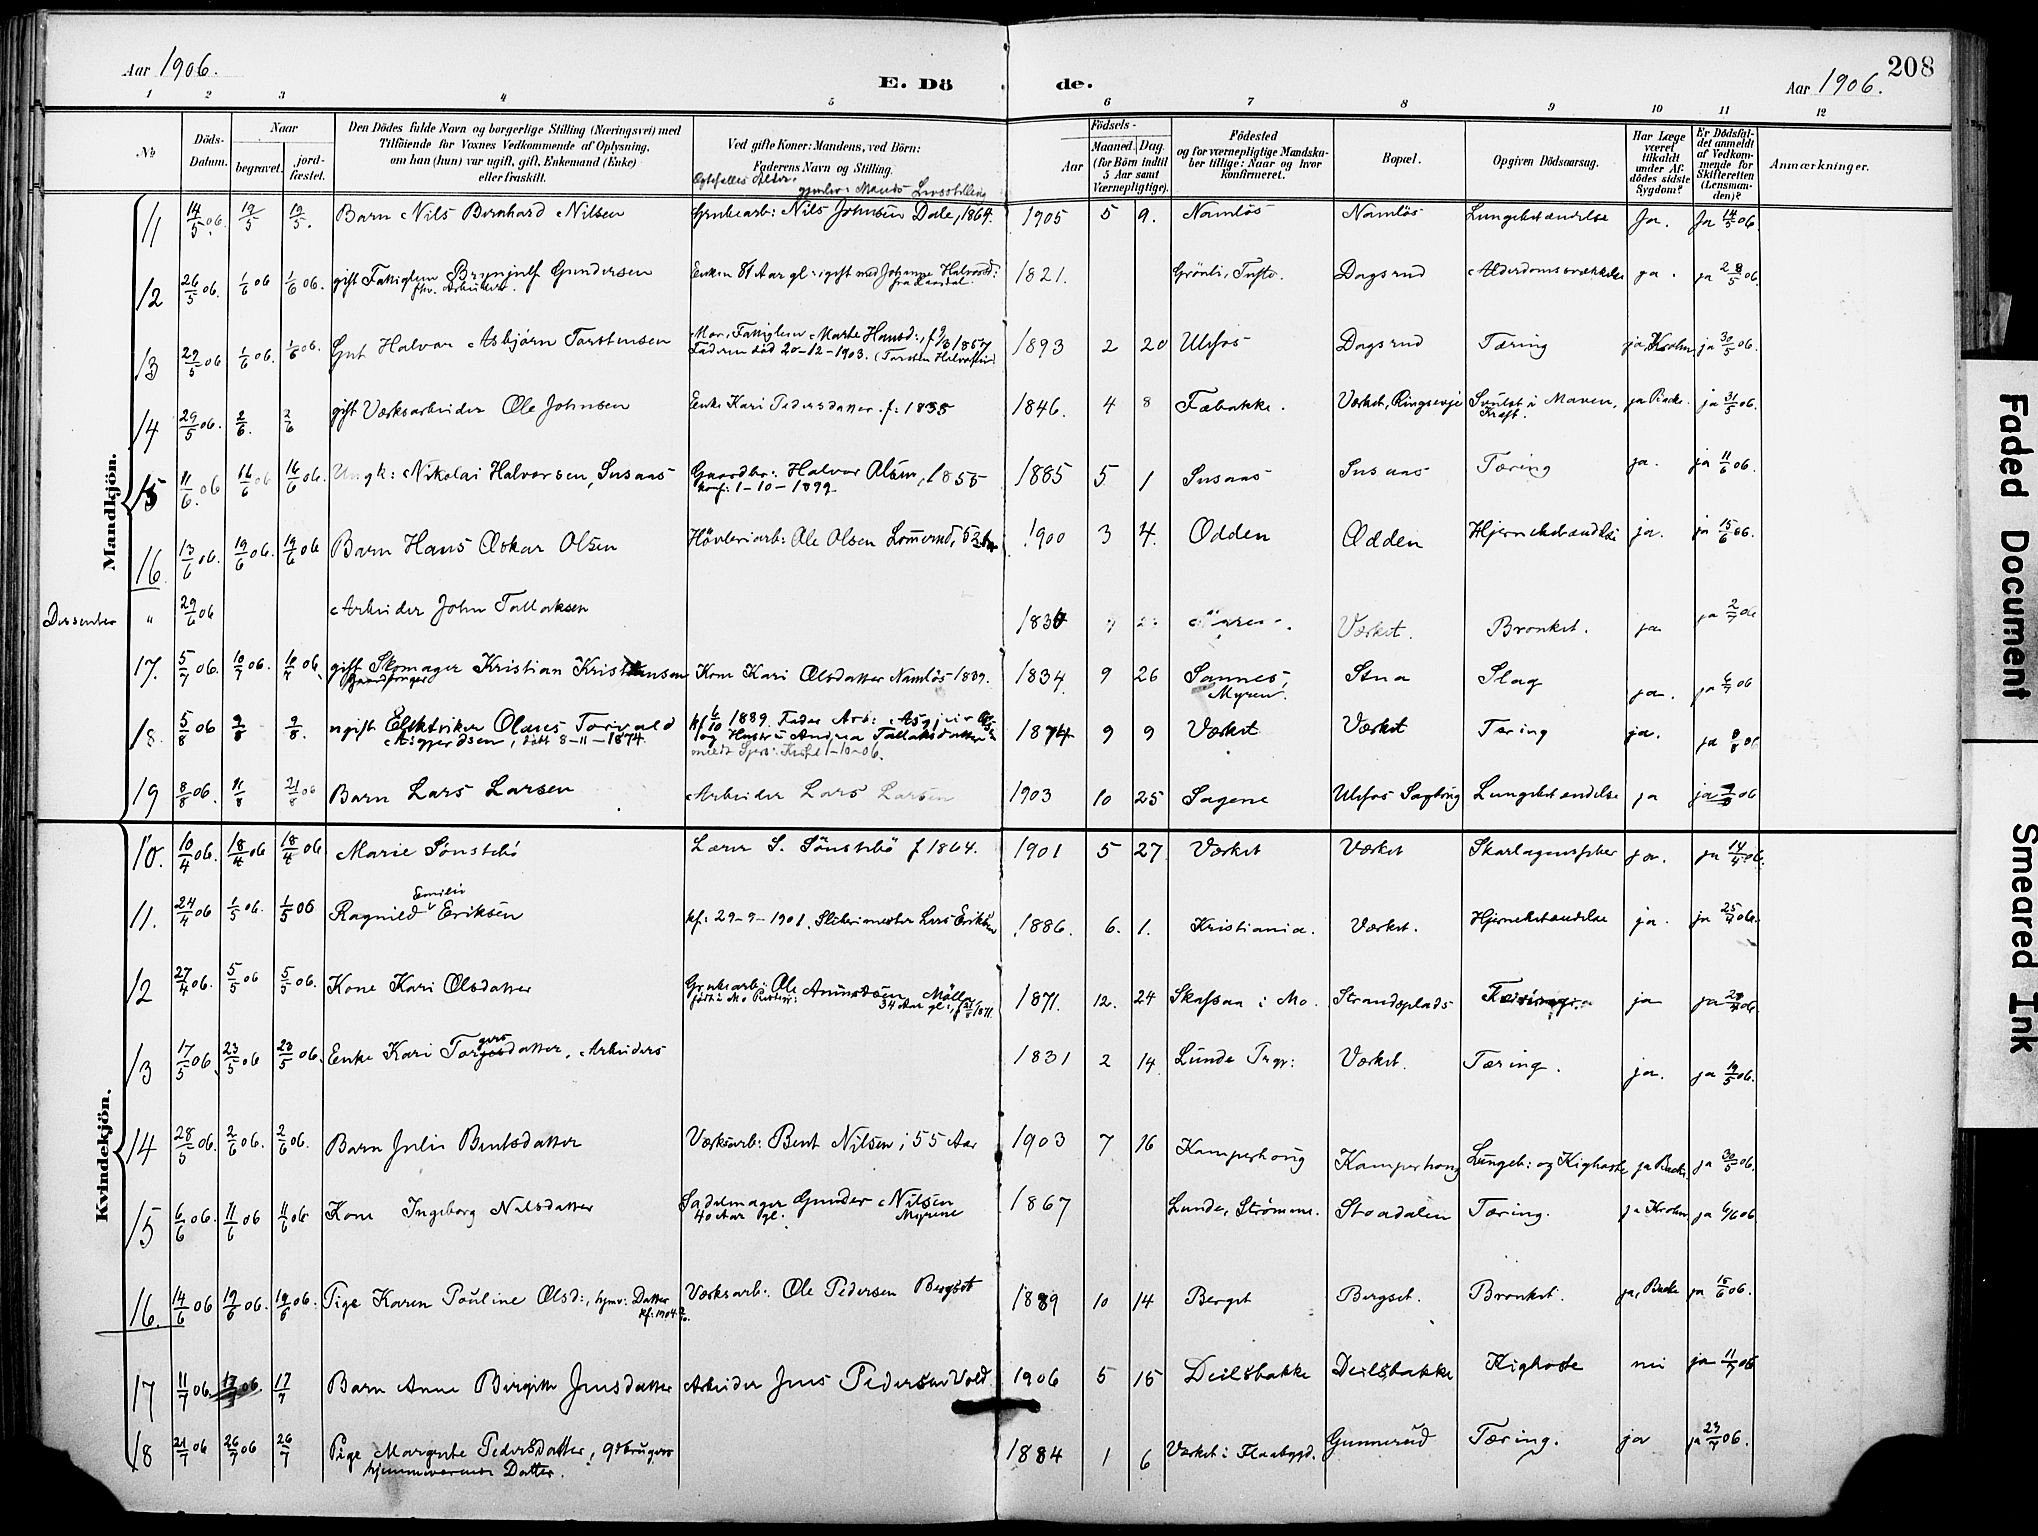 Aar 1906.
E. Dö de.
Aar 1906.
208
1 2 3 4 5 6 7 8 9 10 11 12
No
Döds-Datum.
Naar
begravet.
jord-fæstet.
Den Dödes fulde Navn og borgerlige Stilling (Næringsvei) med
Tilföiende for Voxnes Vedkommende af Oplysning,
om han (hun) var ugift, gift, Enkemand (Enke)
eller fraskilt.
Ved gifte Koner: Mandens, ved Börn:
Faderens Navn og Stilling.
Födsels-
Aar
Maaned. Dag.
(for Börn indtil
5 Aar samt
Værnepligtige).
Födested
og for værnepligtige Mandska-
ber tillige: Naar og hvor
konfirmeret.
Bopæl.
Opgiven Dödsaarsag.
Har Læge
været
tilkaldt
under Af-
dödes sidste
Sygdom?
Er Dödsfal-
det anmeldt
af Vedkom-
mende for
Skifteretten
(Lensman-
den)?
Anmærkninger.
Mandkjön.
11 14/5 06. 19/5 19/5. Barn Nils Bernhard Nilsen Grubearb: Nils Johnsen Dale, 1864. 1905 5 9. Namløs Namløs Lungebetændelse Ja. Ja 14/5 06
12 26/5 06. 1/6 06 1/6 06. gift Fattiglem Brynjulf Gundersen 1821. Grönli, Tufto. Dagsrud Alderdomssvækkelse ja. ja 28/5 06.
13 29/5 06 1/6 06. 1/6 06. Gut Halvor Asbjørn Torstensen
Faderen död 20-12-1903. 1893 2 20 Ulefos Dagsrud Tæring ja, Krohn ja 30/5 06.
14 29/5 06. 2/6. 2/6 gift Værksarbeider Ole Johnsen Enke Kari Pedersdatter f: 1835 1846. 4 8 Fæbakke. Værket, Ringsevje Svulst i Maven, Kræft. ja Backe. ja 31/5 06.
15 11/6 06 16/6 06 16/6 06. Ungk: Nikolai Halvorsen, Susaas Gaardbr: Halvor Olsen, 1855
konf: 1-10-1899 1885 5 1 Susaas Susaas Tæring ja. ja 11/6 06.
16. 13/6 06. 19/6 06. 19/6 06 Barn Hans Oskar Olsen Hövleriarb: Ole Olsen 1900 3 4. Odden Odden Hjernebetændelse ja. ja 15/6 06.
Dissenter " 29/6 06 Arbeider John Tallaksen 1830 Værket. Bronket. ja ja 2/7 06
17. 5/7 06. 10/7 06. 10/7 06. gift Skomager Kristian Kristensen Kone Kari Olsdatter Namløs 1839. 1834 9 26 Sannes, Myren. Stua Slag ja. ja 6/7 06
18. 5/8 06 9/8 9/8. ugift Elektriker Olaves Torvald
Asgjerdsen, födt 8-11-1874 kf 6/10 1889. Fader Arb:
og Hustru Andrea Tallaksdatter 1874 9 9 Værket Værket Tæring ja. ja 8/8 06
19 8/8 06. 11/8 21/8 06 Barn Lars Larsen Arbeider Lars Larsen 1903 10 25 Sagene Ulefos Sagbrug Lungebetændelse ja ja 9/8 06
Kvindekjön.
10. 10/4 06. 18/4 06 18/4 06 Marie Sönstebö Lærer S. Sönstebö f 1864. 1901 5 27 Værket Værket Skarlagensfeber ja. ja 14/4 06.
11. 24/4 06 1/5 06. 1/5 06 Ragnild Emilie Eriksen kf: 29-9-1901. Sliberimester Lars Eriksen 1886. 6. 1. Kristiania. Værket. Hjernebetændelse ja. ja 25/4 06.
12 27/4 06. 5/5 06 5/5 06. Kone Kari Olsdatter Grubearb: Ole Amundsen Möllen
1871. 12. 24 Skafsaa i Mo. Strandsplads ja ja 28/4 06.
13 17/5 06. 23/5 06 23/5 06. Enke Kari Torgersdatter, Arbeiders 1831 2 14 Lunde Prgj: Værket. Tæring. ja. ja 19/5 06.
14 28/5 06. 2/6 06. 2/6 06. Barn Julie Bentsdatter Værksarb: Bent Nilsen, 55 Aar 1903 7 16 Kamperhoug Kamperhoug Lungeb: og Kighoste ja Backe ja 30/5 06.
15 6/6 06. 11/6 06 11/6 06 Kone Ingeborg Nilsdatter Sadelmager Gunder Nilsen
40 Aar gl. Myrene 1867 Lunde, Strömene. Stoadalen Tæring. ja Krohn ja 6/6 06
16. 14/6 06 19/6 06. 19/6 06. Pige Karen Pauline Olsd:, hjmv: Datter
kf: 1904 Værksarb: Ole Pedersen Berget 1889 10 14 Berget Berget. Bronket. ja, Backe ja 15/6 06.
17 11/7 06. 17/7 06 17/7 Barn Anne Birgitte Jensdatter Arbeider Jens Pedersen Vold 1906 5 15 Deilsbakke Deilsbakke Kighoste nei ja 11/7 06
18 21/7 06 26/7 06 26/7 Pige Margrete Pedersdatter, Gdbrugers
hjemmeværende Datter. 1884 1 6 Værket i Flaabygd. Gunnerud Tæring. ja ja 23/7 06.
Faded Document
Smeared Ink